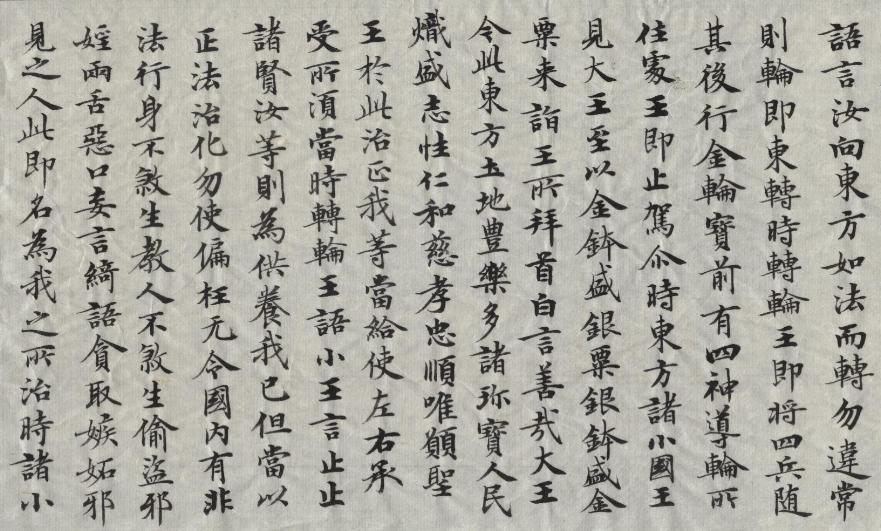 語言汝向東方如法而轉勿違常
則輪即東轉時轉輪王即将四兵随
其後行金輪寶前有四神導輪所
住處王即止駕尒時東方諸小國王
見大王至以金鉢盛銀粟銀鉢盛金
粟来詣王所拜首白言善哉大王
今此東方土地豊樂多諸珎寶人民
熾盛志性仁和慈孝忠順唯願聖
王於此治正我等當給使左右承
受所湏當時轉輪王語小王言止止
諸賢汝等則為供養我已但當以
正法治化勿使偏枉无令國内有非
法行身不煞生教人不煞生偷盗邪
婬兩舌惡口妄言綺語貪取嫉妬邪
見之人此即名為我之所治時諸小